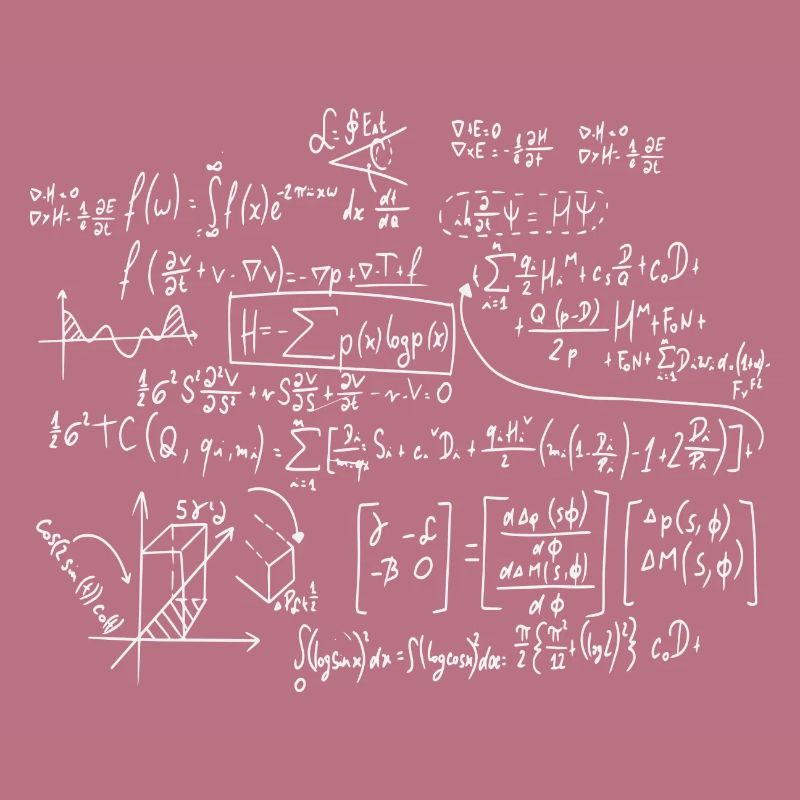 ℒ = ∮ E∧t
∇·E=0
∇×E = -1/c ∂H/∂t
∇·H=0
∇×H= 1/c ∂E/∂t
∇·H=0
∇×H= 1/c ∂E/∂t
f(ω) = ∫_{-∞}^{∞} f(x)e^{-2πixω} dx df/dQ
iħ ∂/∂t Ψ = HΨ
f(∂v/∂t + v·∇v) = -∇p + ∇·T + f
+ ∑_{i=1}^{n} q_i/2 H_i^M + c_s D/Q + c_0 D +
+ Q(p-D)/2p H^M + F_0 N +
+ F_0 N + ∑_{i=1}^{n} D_i w_i d_0 (1+α)·
F_v^{F2}
H = -∑ p(x) log p(x)
1/2 σ² S² ∂²V/∂S² + r S ∂V/∂S + ∂V/∂t - r·V = 0
1/2 σ² TC(Q, q_i, m_i) = ∑_{i=1}^{n} [D_i/m_i q_i S_i + c_i^v D_i + q_i H_i^v/2 (m_i(1-D_i/P_i)-1+2 D_i/P_i)] +
Cos(2 Sin (t)) cos(t)
[γ -ℒ; -B 0] = [d Δp (s,ϕ)/dϕ; d Δ M(s,ϕ)/dϕ] [Δp(s,ϕ); ΔM(s,ϕ)]
∫_0 (log sin x)² dx = ∫(log cos x)² dx = π/2 {π²/12 + (log2)²} c_0 D +